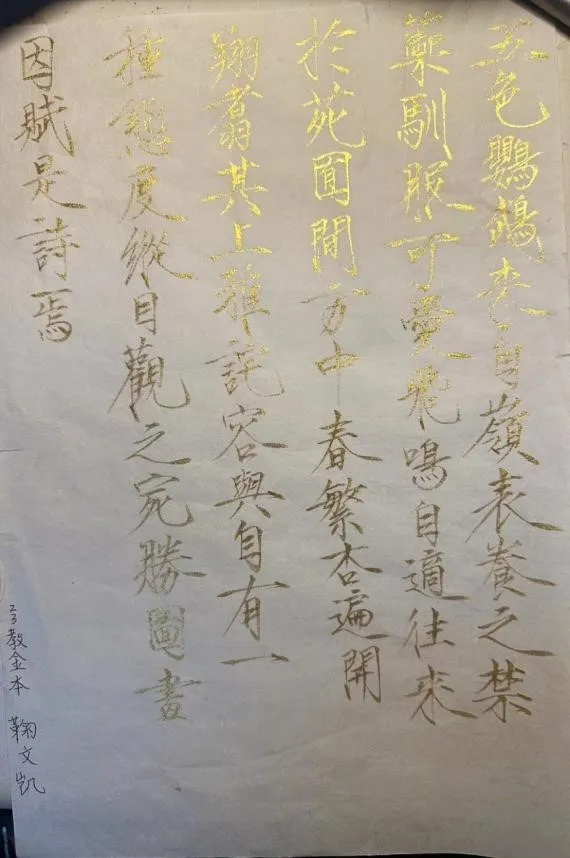 五色鸚鵡来自嶺表養之禁
籞馴服可愛飛鳴自適往来
於苑囿間方中春繁杏遍開
翔翥其上雅詫容與自有一
種態度縱目觀之宛勝圖畫
因賦是詩焉
23教金本 鞠文凯